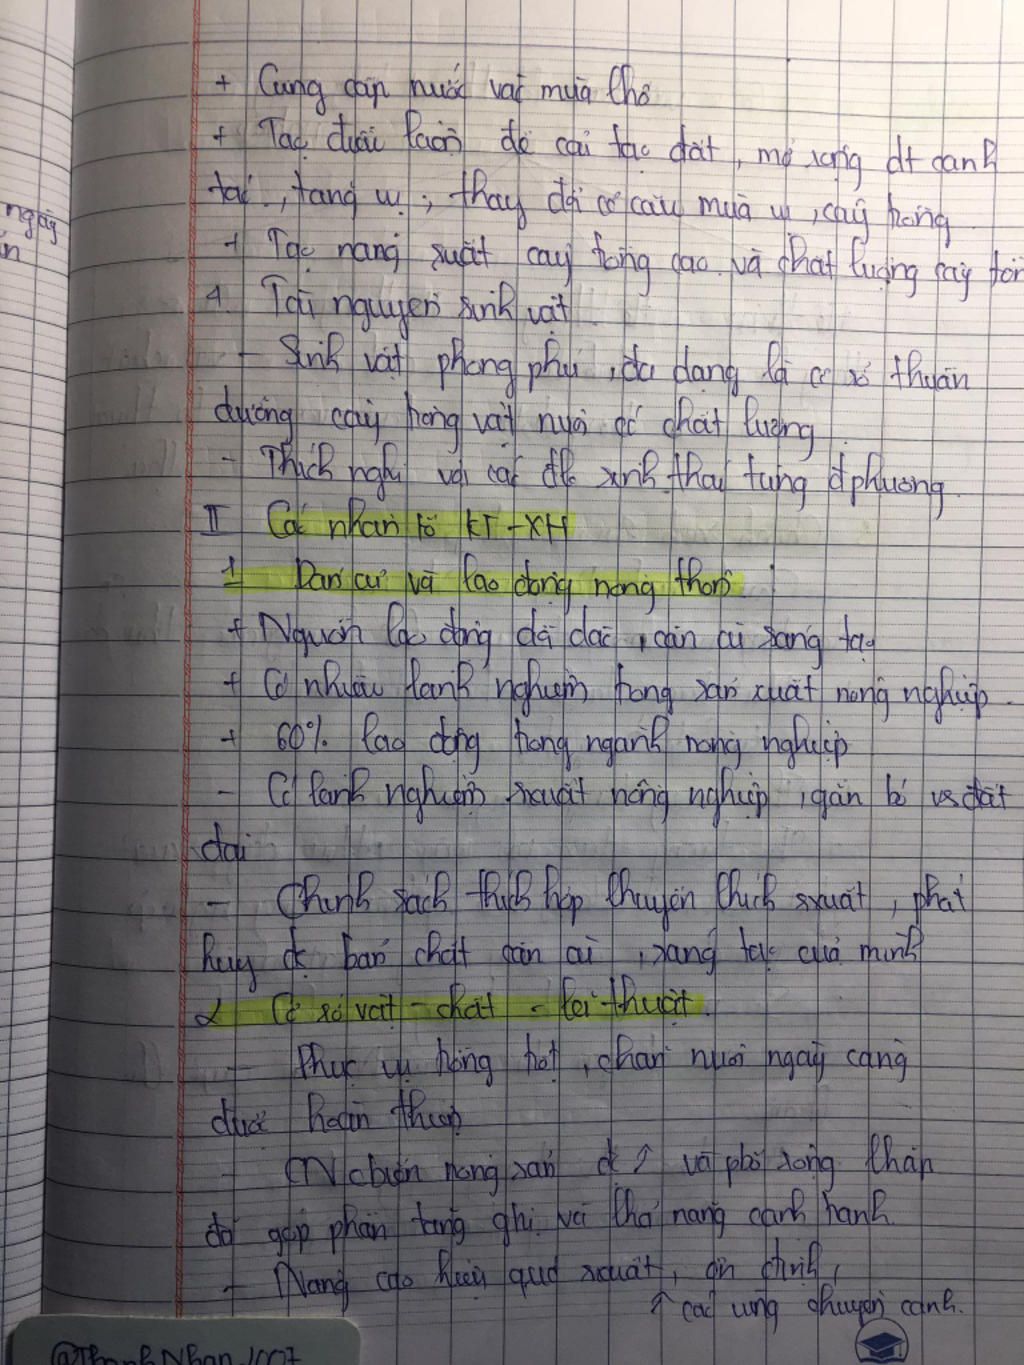 + Cung cấp nước vào mùa khô
+ Tạo điều kiện để cải tạo đất, mở rộng dt canh
tác, tăng vụ, thay đổi cơ cấu mùa vụ, cây trồng
+ Tạo năng suất cây trồng cao và chất lượng cây trồn
4. Tài nguyên sinh vật
- Sinh vật phong phú, đa dạng là cơ sở thuần
dưỡng cây trồng vật nuôi có chất lượng
- Thích nghi với các đk sinh thái từng đphương
II Các nhân tố KT-XH
1 Dân cư và lao động nông thôn
+ Nguồn lao động dồi dào, cần cù sáng tạo
+ Có nhiều kinh nghiệm trong sản xuất nông nghiệp.
+ 60% lao động trong ngành nông nghiệp
- Có kinh nghiệm sxuất nông nghiệp, gắn bó vs đất
đai
- Chính sách thích hợp khuyến khích sxuất, phát
huy đc bản chất cần cù, sáng tạo của mình
2 Cơ sở vật - chất - kĩ thuật.
- Phục vụ trồng trọt, chăn nuôi ngày càng
được hoàn thiện
- CN cbiến nông sản đc ↑ và phổ rộng khắp
đã góp phần tăng gtrị và khả năng cạnh tranh.
- Nâng cao hiệu quả sxuất, ổn định,
↑ các vùng chuyên canh.
ngày
@ThanhNhan.1007